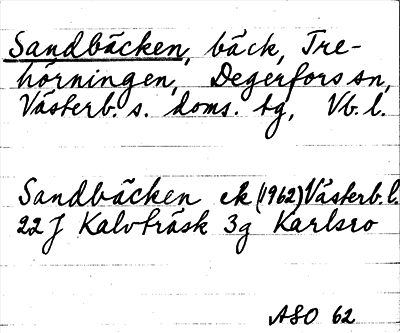 Sandbäcken, bäck, Tre-
hörningen, Degerfors sn,
Västerb. s. doms. tg, Vb. l.
Sandbäcken ek (1962) Västerb. l.
22 J Kalvträsk 3g Karlsro
ASO 62